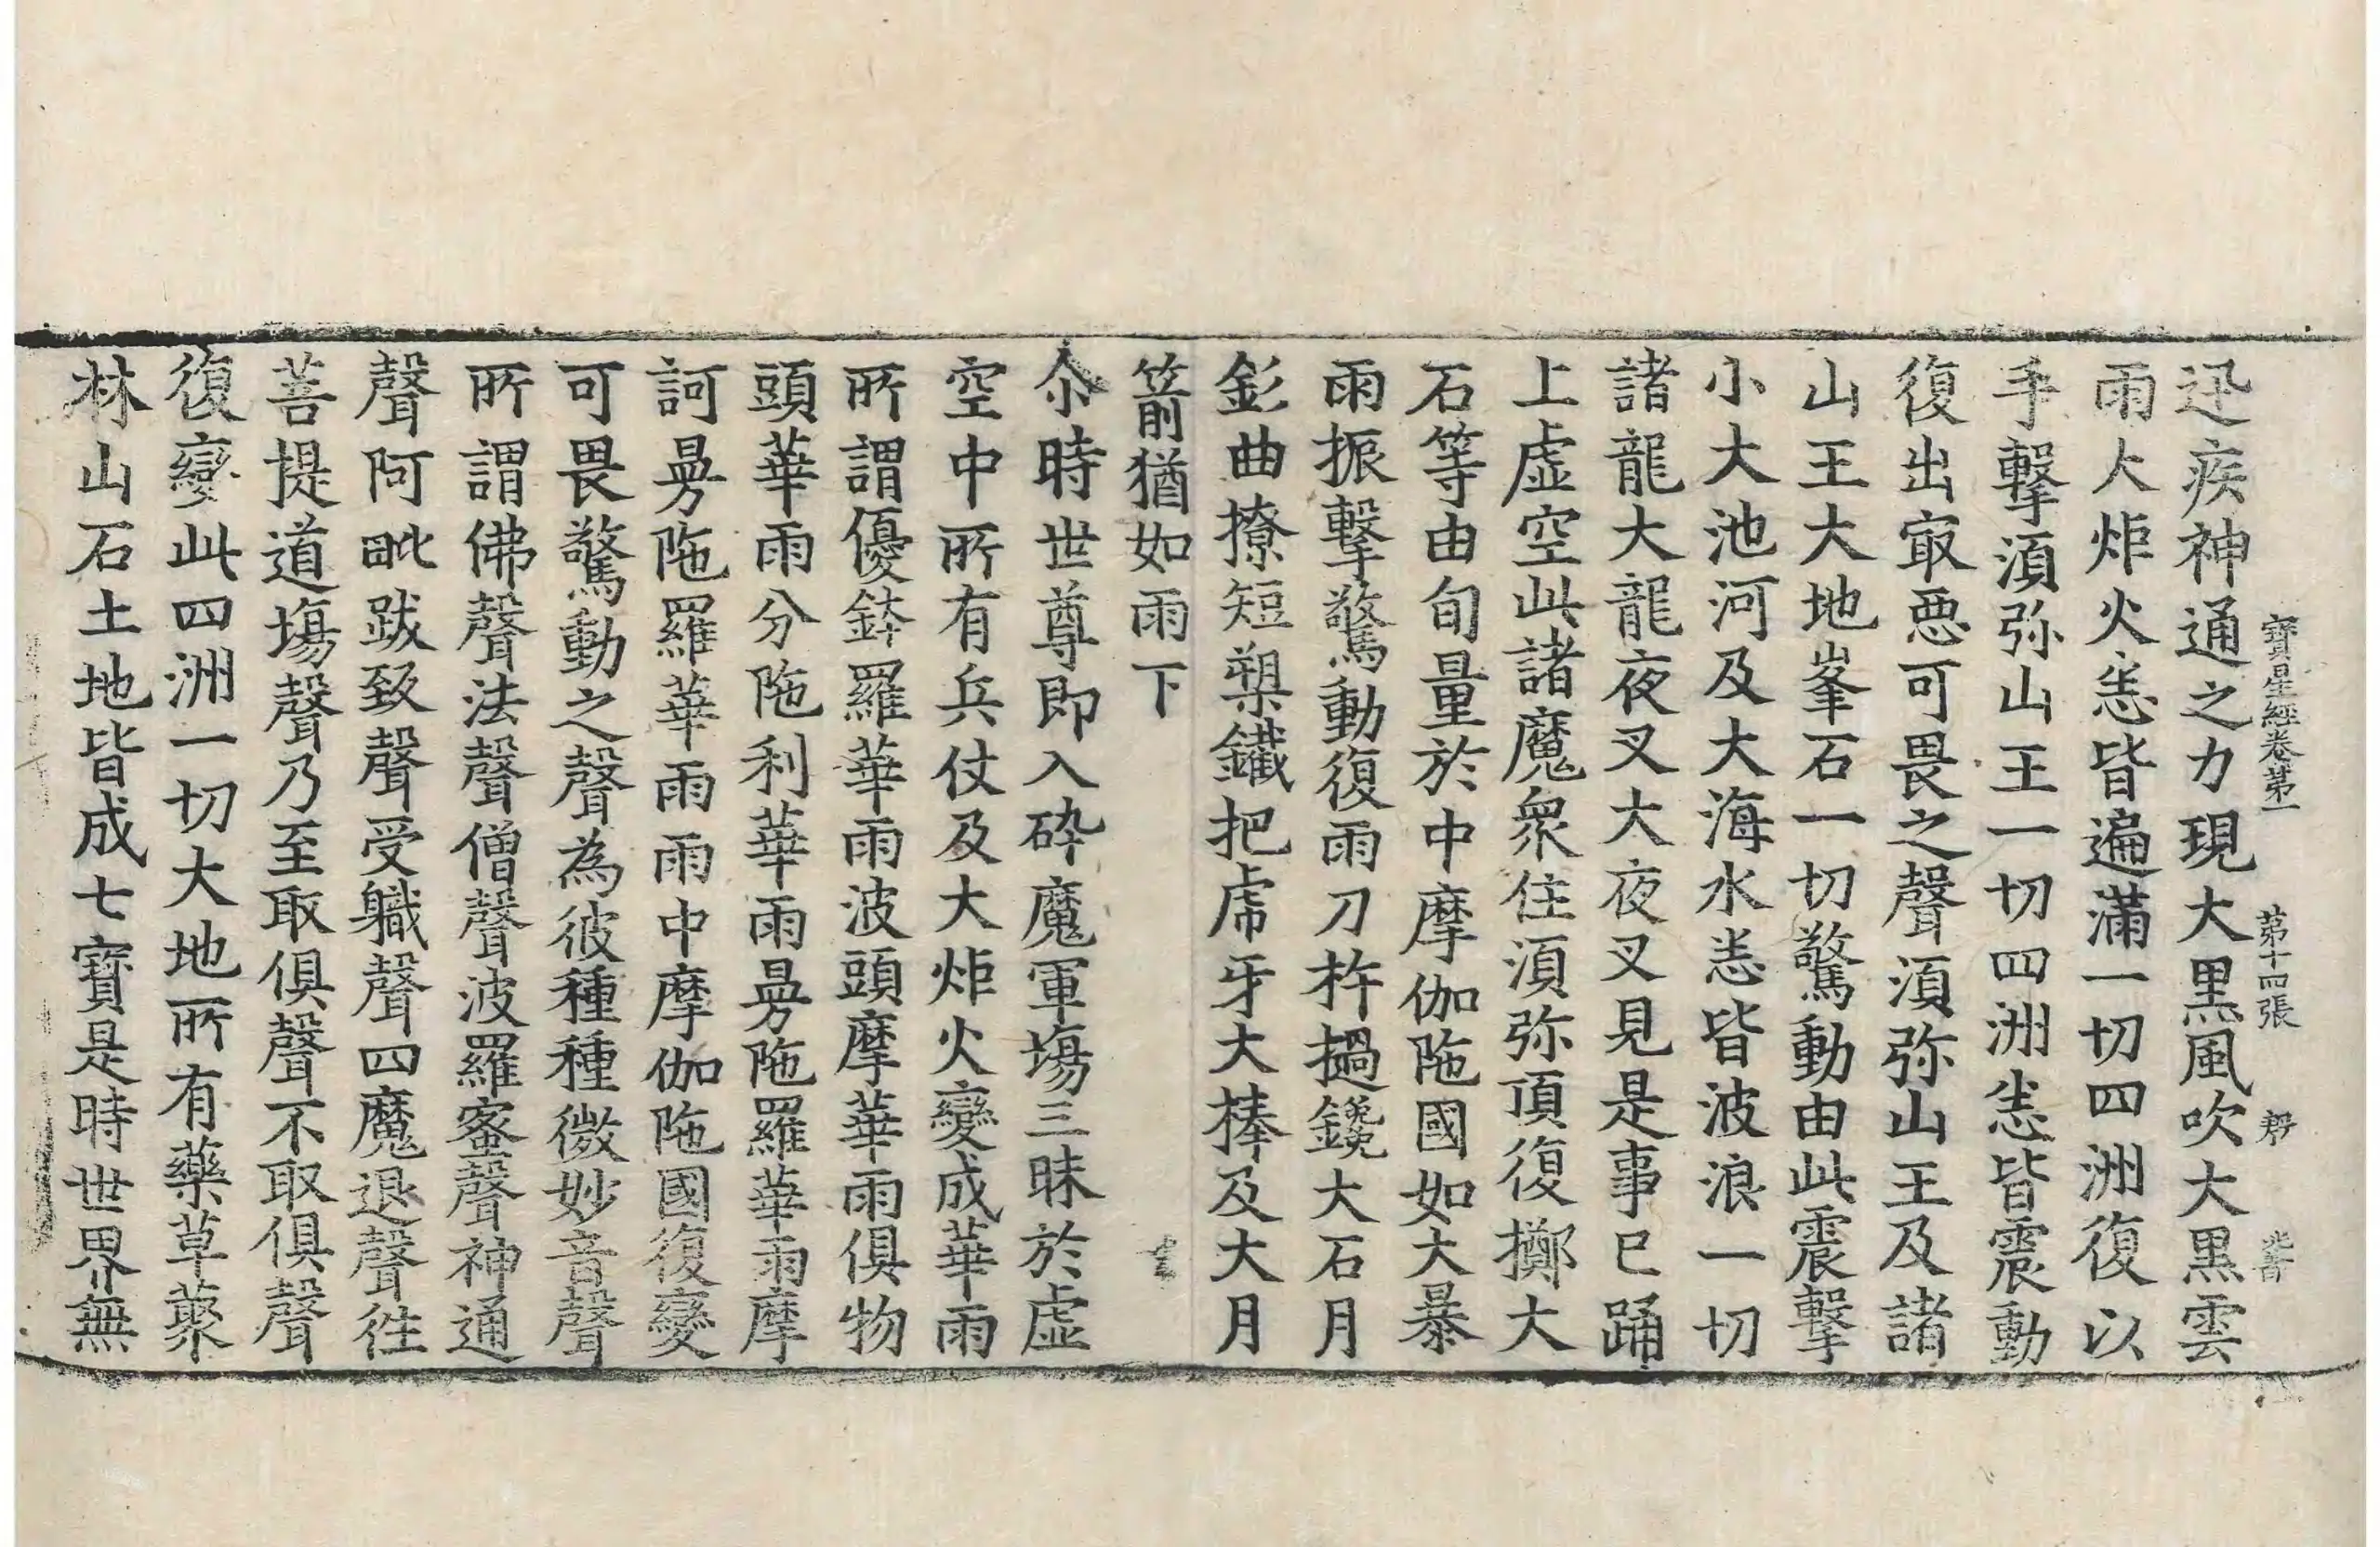 寶星經卷第一 第十四張
迅疾神通之力現大黑風吹大黒雲
雨大炬火悉皆遍滿一切四洲復以
手擊湏弥山王一切四洲悉皆震動
復出㝡惡可畏之聲湏弥山王及諸
山王大地峯石一切驚動由此震擊
小大池河及大海水悉皆波浪一切
諸龍大龍夜叉大夜叉見是事已踊
上虛空此諸魔衆住湏弥頂復擲大
石等由旬量於中摩伽陁國如大暴
雨振擊驚動復雨刀杵撾鑱大石月
釤曲撩短槊鐵把虎牙大棒及大月
箭猶如雨下
尒時世尊即入碎魔軍場三昧於虛
空中所有兵仗及大炬火變成華雨
所謂優鉢羅華雨波頭摩華雨俱物
頭華雨分陁利華雨曼陁羅華雨摩
訶曼陁羅華雨雨中摩伽陁國復變
可畏驚動之聲為彼種種微妙音聲
所謂佛聲法聲僧聲波羅蜜聲神通
聲阿毗跋致聲受職聲四魔退聲徃
菩提道場聲乃至取俱聲不取俱聲
復變此四洲一切大地所有藥草藂
林山石土地皆成七寶是時世界無